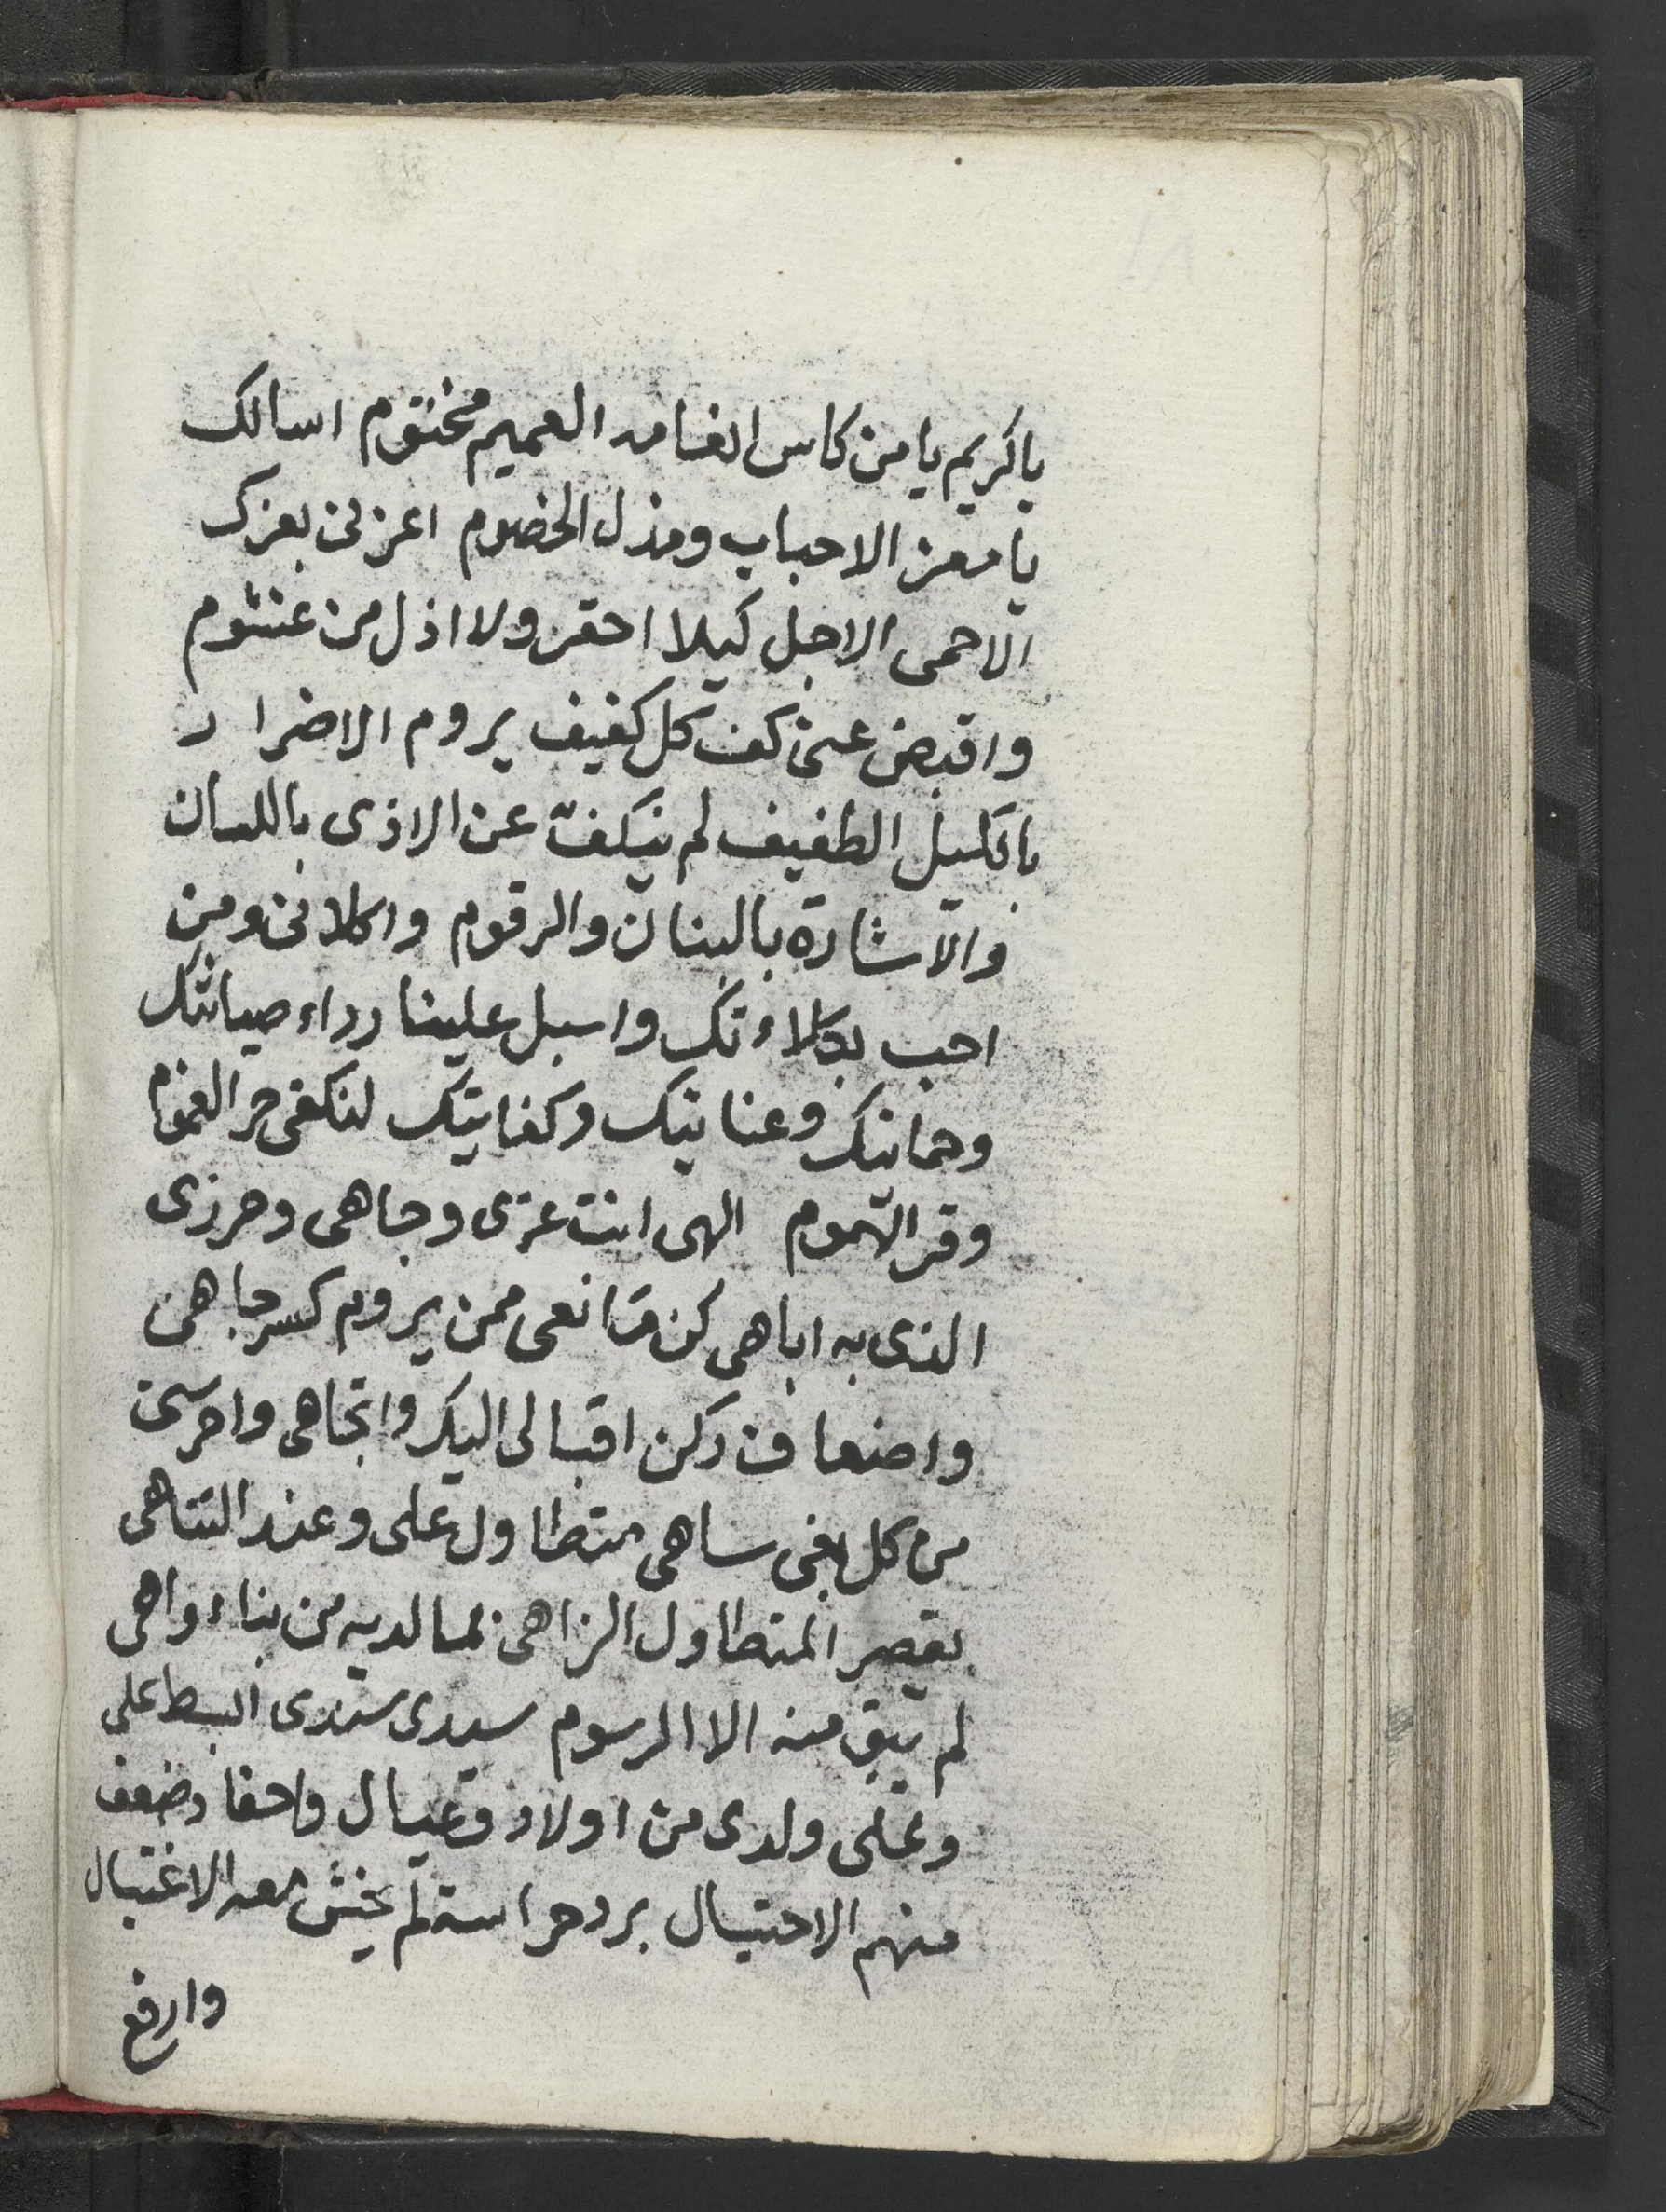 يا كريم يا من كاس انعامه العميم مختوم اسالك
يا معز الاحباب ومذل الخصوم اعزنى بعزك
الاحمى الاجل كيلا احقر ولا اذل من غشوم
واقبض عنى كف كل كفيف يروم الاضرار
بالكيل الطفيف لم ينكف عن الاذى باللسان
والاشارة بالبنان والرقوم واكلانى ومن
احب بكلاءتك واسبل علينا رداء صيانتك
وحمايتك وعنايتك وكفايتك لنكفى حر الغموم
وقر الهموم الهى انت عزى وجاهى وحرزى
الذى به اباهى كن مانعى ممن يروم كسر جاهى
واضعاف ركن اقبالى اليك واتجاهى واحرسنى
من كل باغى ساهى متطاول على وعند التناهى
يقصر المتطاول الزاهى لما لديه من بناء واهى
لم يبق منه الا الرسوم سيدى سندى ابسط على
وعلى ولدى من اولاد وعيال واحفاد ضعف
منهم الاحتيال برد حراسة لم يخش معه الاغتيال
وارفع